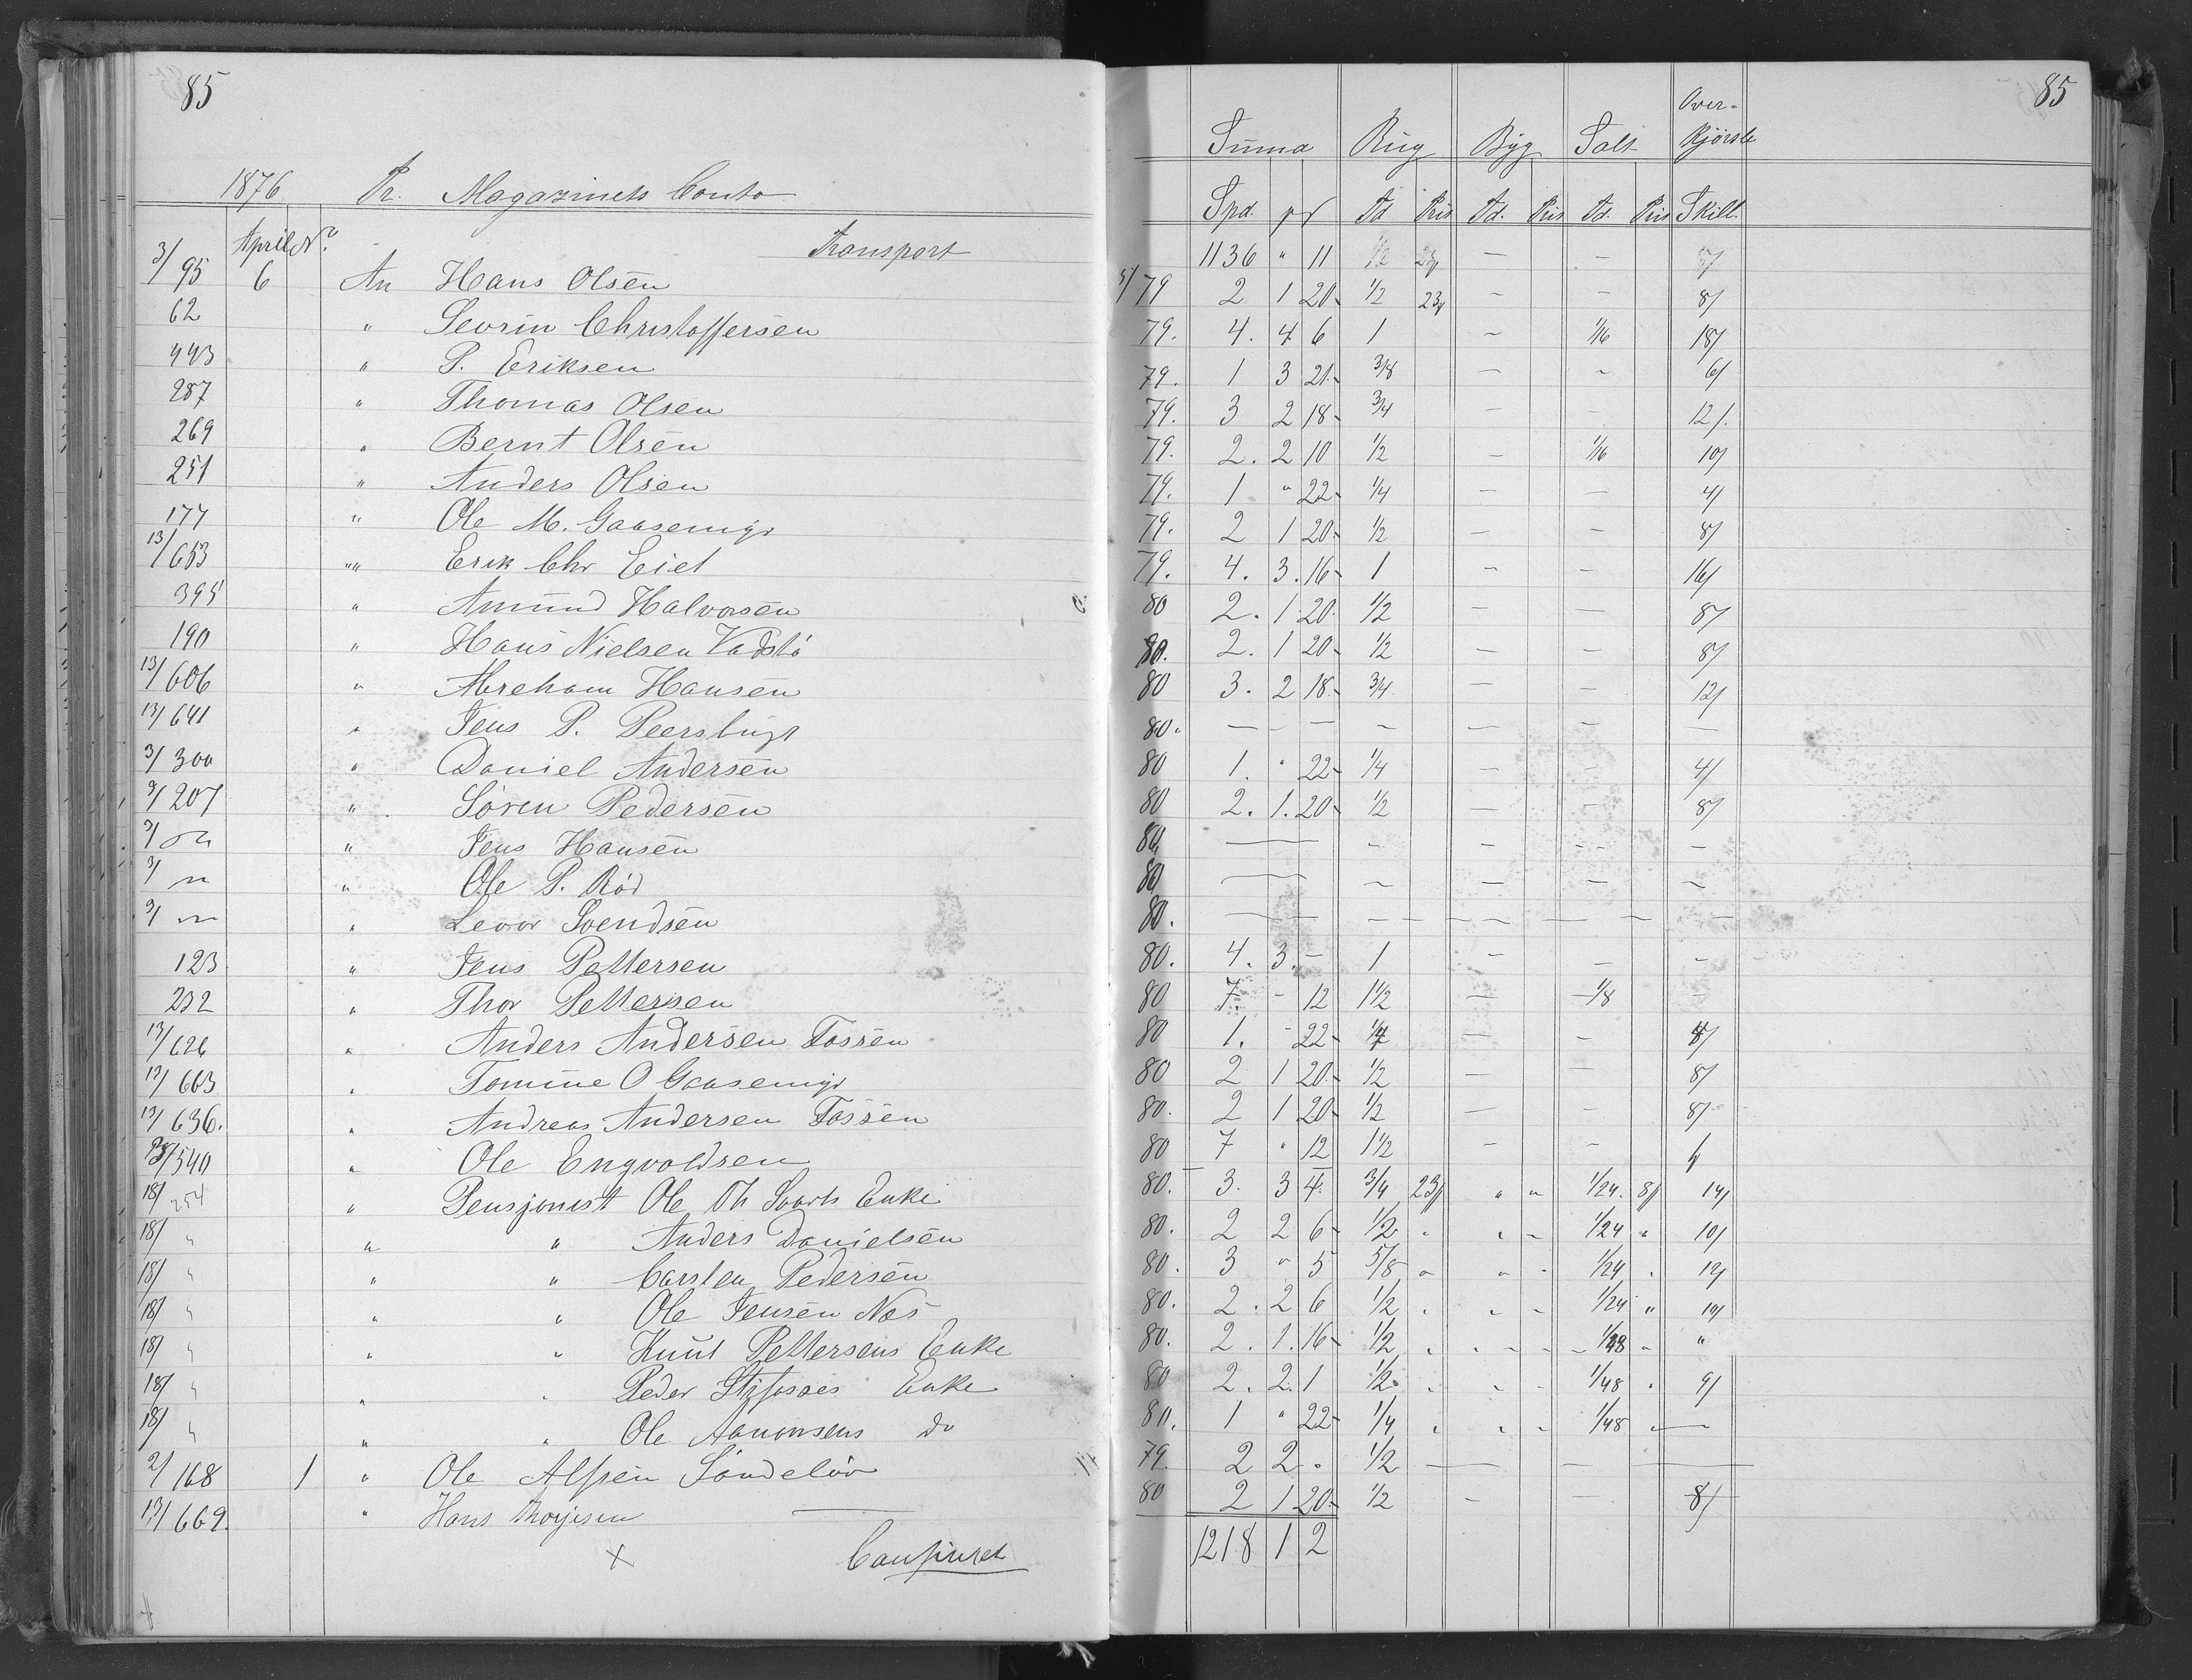 85
1876 Pr. Magazinets Conto
April No. Transport
3/95 6 An Hans Olsen
62 " Sevrin Christoffersen
443 " P. Eriksen
287 " Thomas Olsen
269 " Bernt Olsen
251 " Anders Olsen
177 " Ole M. Gaasemyr
13/653 "" Erik Chr Eiet
395 " Amund Halvorsen
190 " Hans Nielsen
13/606 " Abreham Hansen
13/641 " Jens P. Peersbugt
3/300 " Daniel Andersen
3/207 " Søren Pedersen
3/ " Jens Hansen
3/ " Ole P. Röd
3/ " Levor Svendsen
123 " Jens Pettersen
232 " Thor Pettersen
13/626 " Anders Andersen Fossen
13/663 " Tomine O Gaasemyr
13/636. " Andreas Andersen Fossen
/540 " Ole Engvoldsen
18/254 " Pensjonist Ole Th Enke
18/ " " " Anders Danielsen
18/ " " " Carsten Pedersen
18/ " " " Ole Jensen Næs
18/ " " " Knut Pettersens Enke
18/ " " " Peder Enke
18/ " " " Ole Aanonsens do
2/168 1 " Ole Alfsen Söndeløv
13/669. " Hans
x
85
Summa Rug Byg Salt Over-kjørsle
Spd. Td Pris Td. Pris Td. Pris Skill.
1136 " 11 1/2 23/ — — 5/
5/79 2 1 20 1/2 23/ — — 8/
79. 4. 4 6 1 — 1/16 18/
79. 1 3 21 3/8 — — 6/
79. 3 2 18 3/4 — — 12/.
79. 2. 2 10 1/2 — 1/16 10/
79. 1 " 22 1/4 — — 4/
79. 2 1 20 1/2 — — 8/
79. 4. 3. 16 1 — — 16/
80 2. 1 20. 1/2 — — 8/
80. 2. 1 20 1/2 — — 8/
80 3. 2 18. 3/4 — — 12/
80. — — — — — — —
80 1. " 22 1/4 — — 4/
80 2. 1. 20 1/2 — — 8/
80, — — — — —
80 — — — — —
80. — — — — — — —
80. 4. 3. — 1 — — —
80 7. - 12 1 1/2 — 1/8 —
80 1. - 22 1/4 — — 4/
80 2 1 20 1/2 — — 8/
80. 2 1 20 1/2 — — 8/
80 7 " 12 1 1/2 — —
80. 3. 3 4. 3/4 23/ " " 1/24. 8/ 14/
80. 2 2 6 1/2 " " " 1/24 " 10/
80. 3 " 5 5/8 " " " 1/24 " 12/
80. 2. 2 6 1/2 " " " 1/24 " 10/
80. 2. 1. 16 1/2 " " " 1/48 " "
80 2. 2. 1 1/2 " " " 1/48 " 9/
80. 1 " 22 1/4 " " " 1/48 " —
79. 2 2 . 1/2 — — — —
80 2 1 20 1/2 — — 8/
1218 1 2